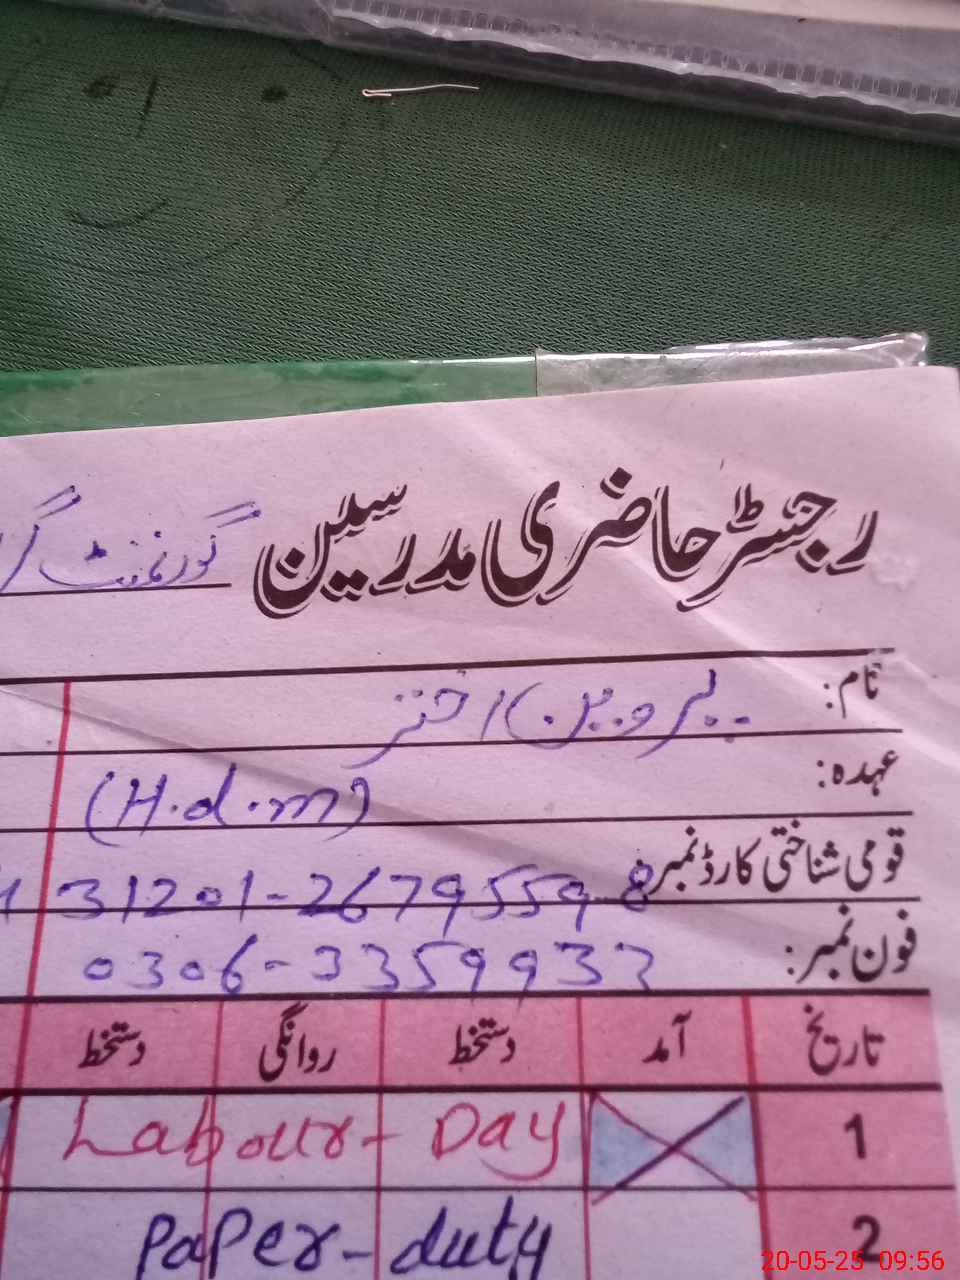 رجسٹر حاضری مدرسین گورنمنٹ
نام: پروین اختر
عہدہ: (H.d.m)
قومی شناختی کارڈ نمبر 31201-2679559-8
فون نمبر: 0306-3359933
تاریخ آمد دستخط روانگی دستخط
1 Labour-Day
2 Paper-duty
20-05-25 09:56